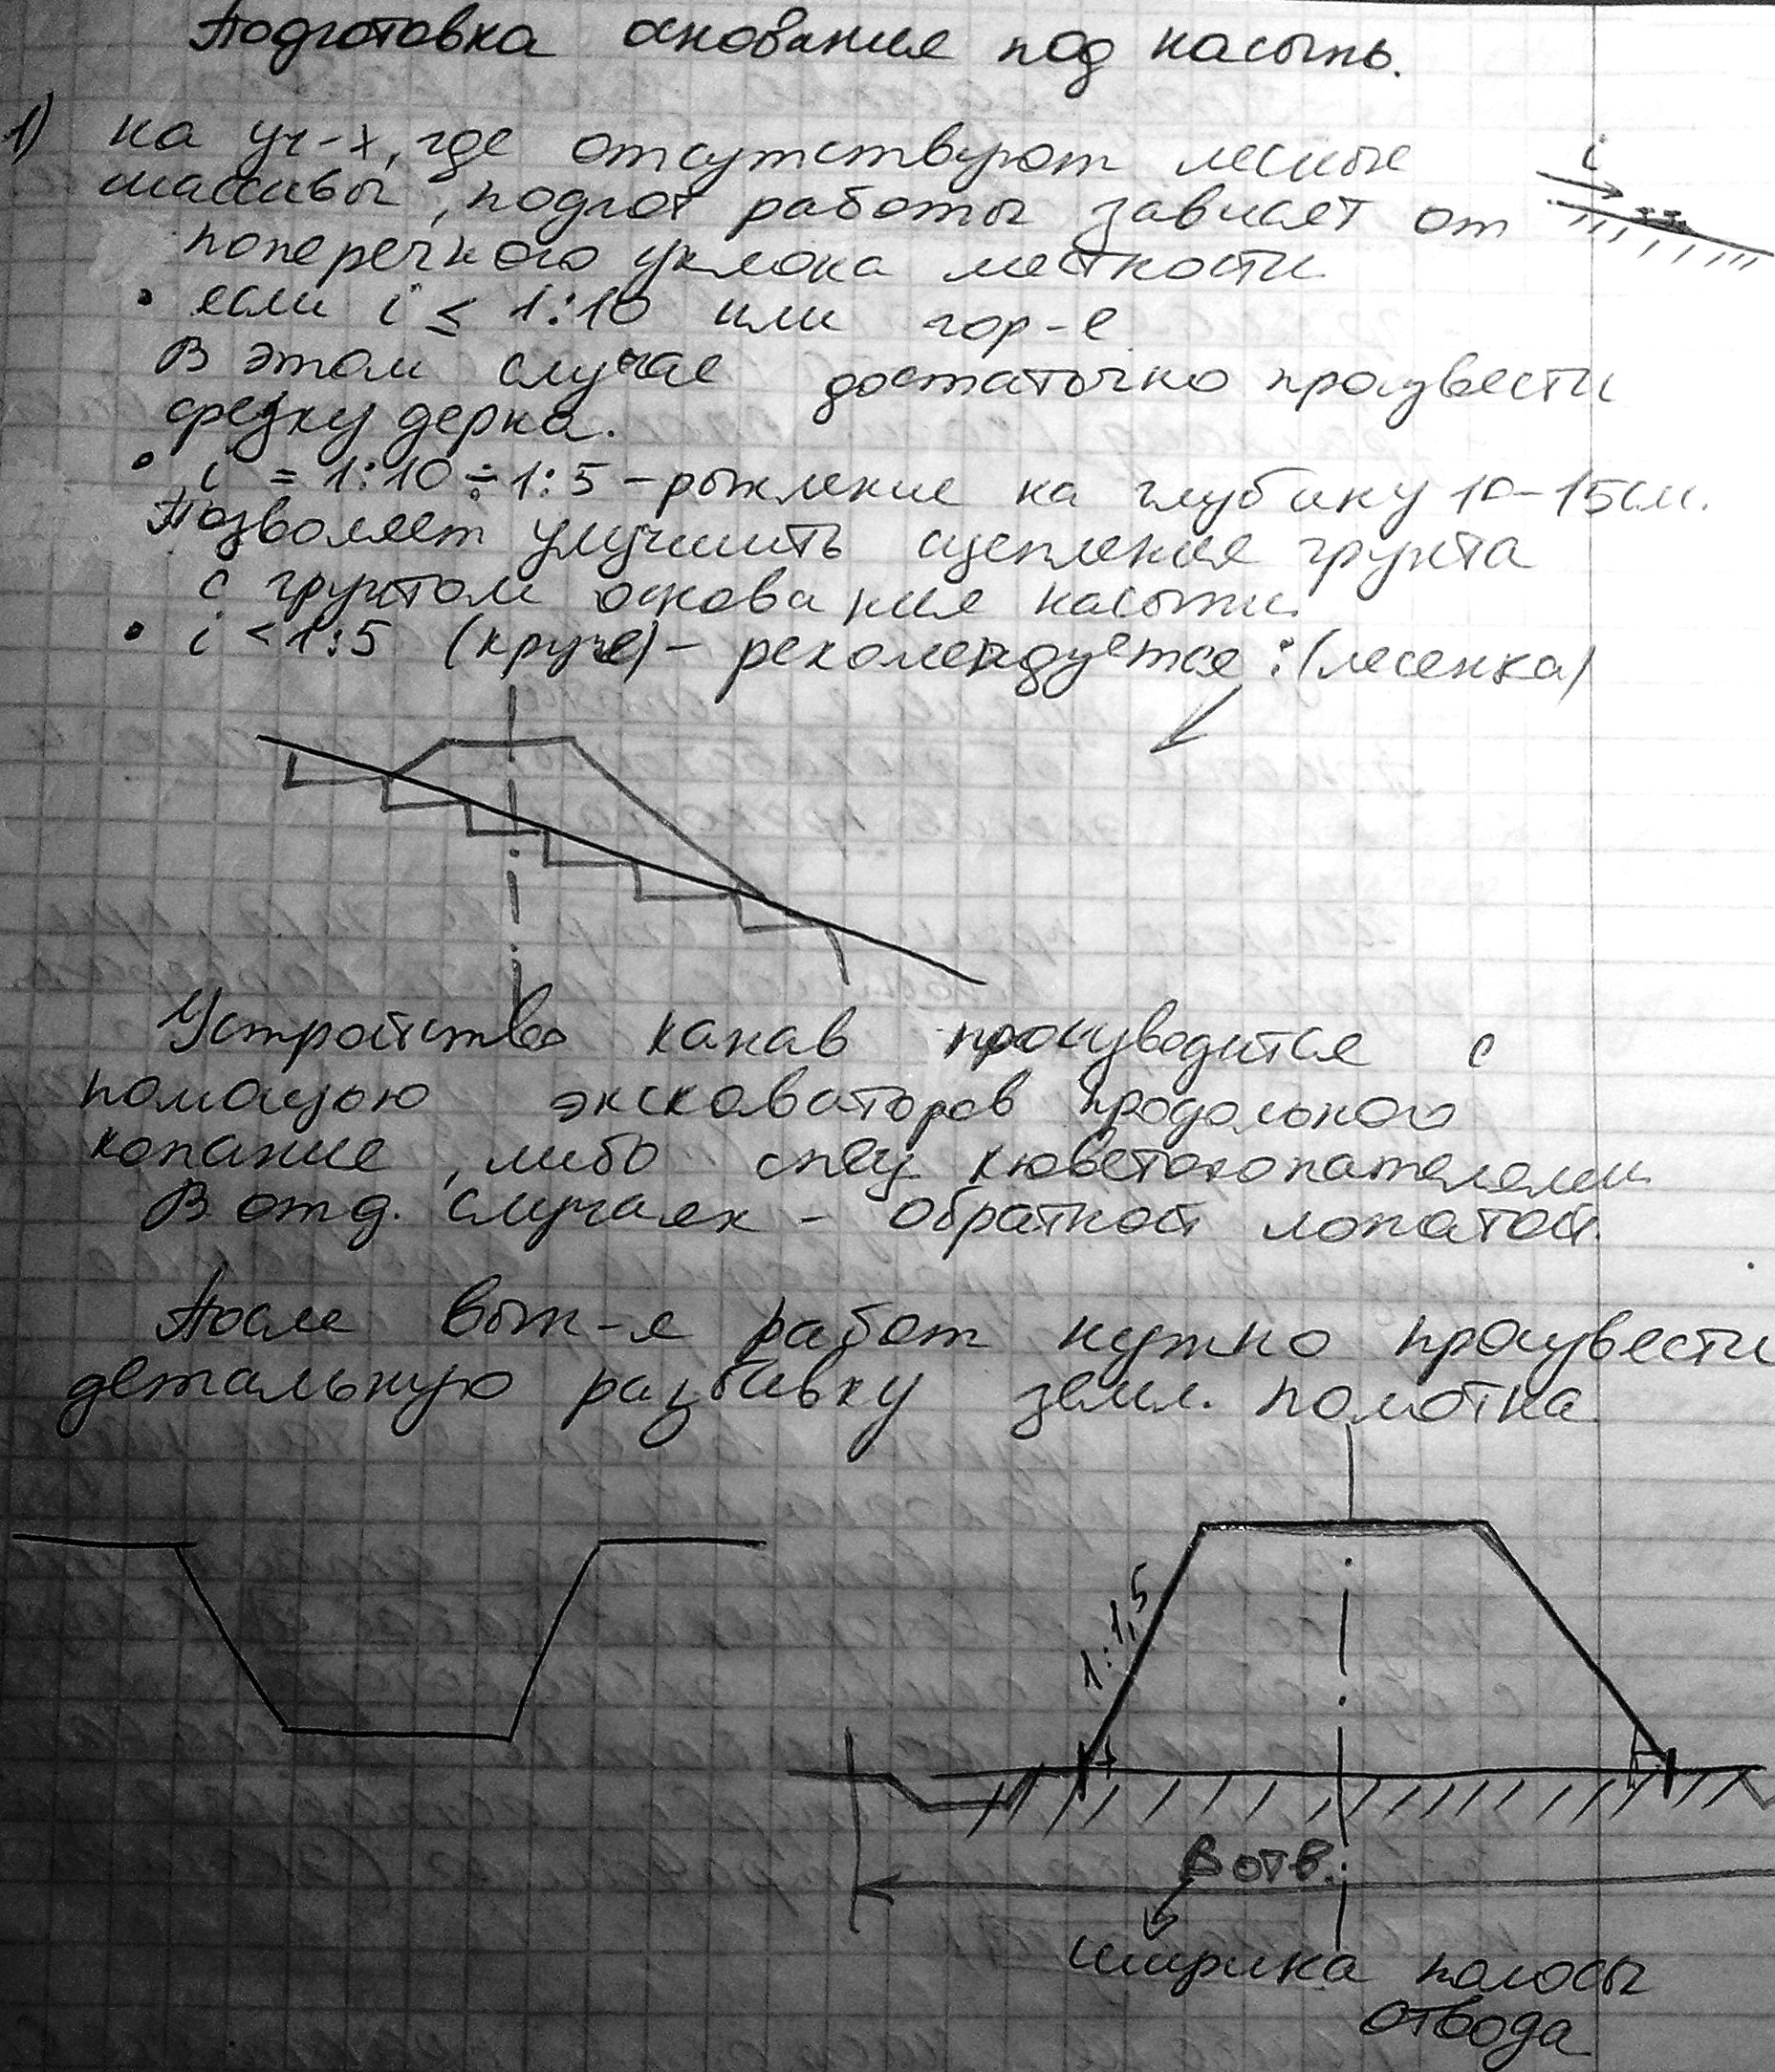 Подготовка основания под насыпь.
1) на уч-х, где отсутствуют лесные
i
массивы, подгот работы зависят от
поперечного уклона местности
• если i ≤ 1:10 или гор-е
В этом случае достаточно произвести
срезку дерна.
• i = 1:10 ÷ 1:5 – рыхление на глубину 10–15см.
Позволяет улучшить сцепление грунта
с грунтом основания насыпи.
• i < 1:5 (круче) – рекомендуется: (лесенка)
Устройство канав производится с
помощью экскаваторов продольного
копания, либо спец кюветокопателями.
В отд. случаях – обратной лопатой.
После вып-я работ нужно произвести
детальную разбивку земл. полотна
1:1,5
Вотв.
ширина полосы
отвода